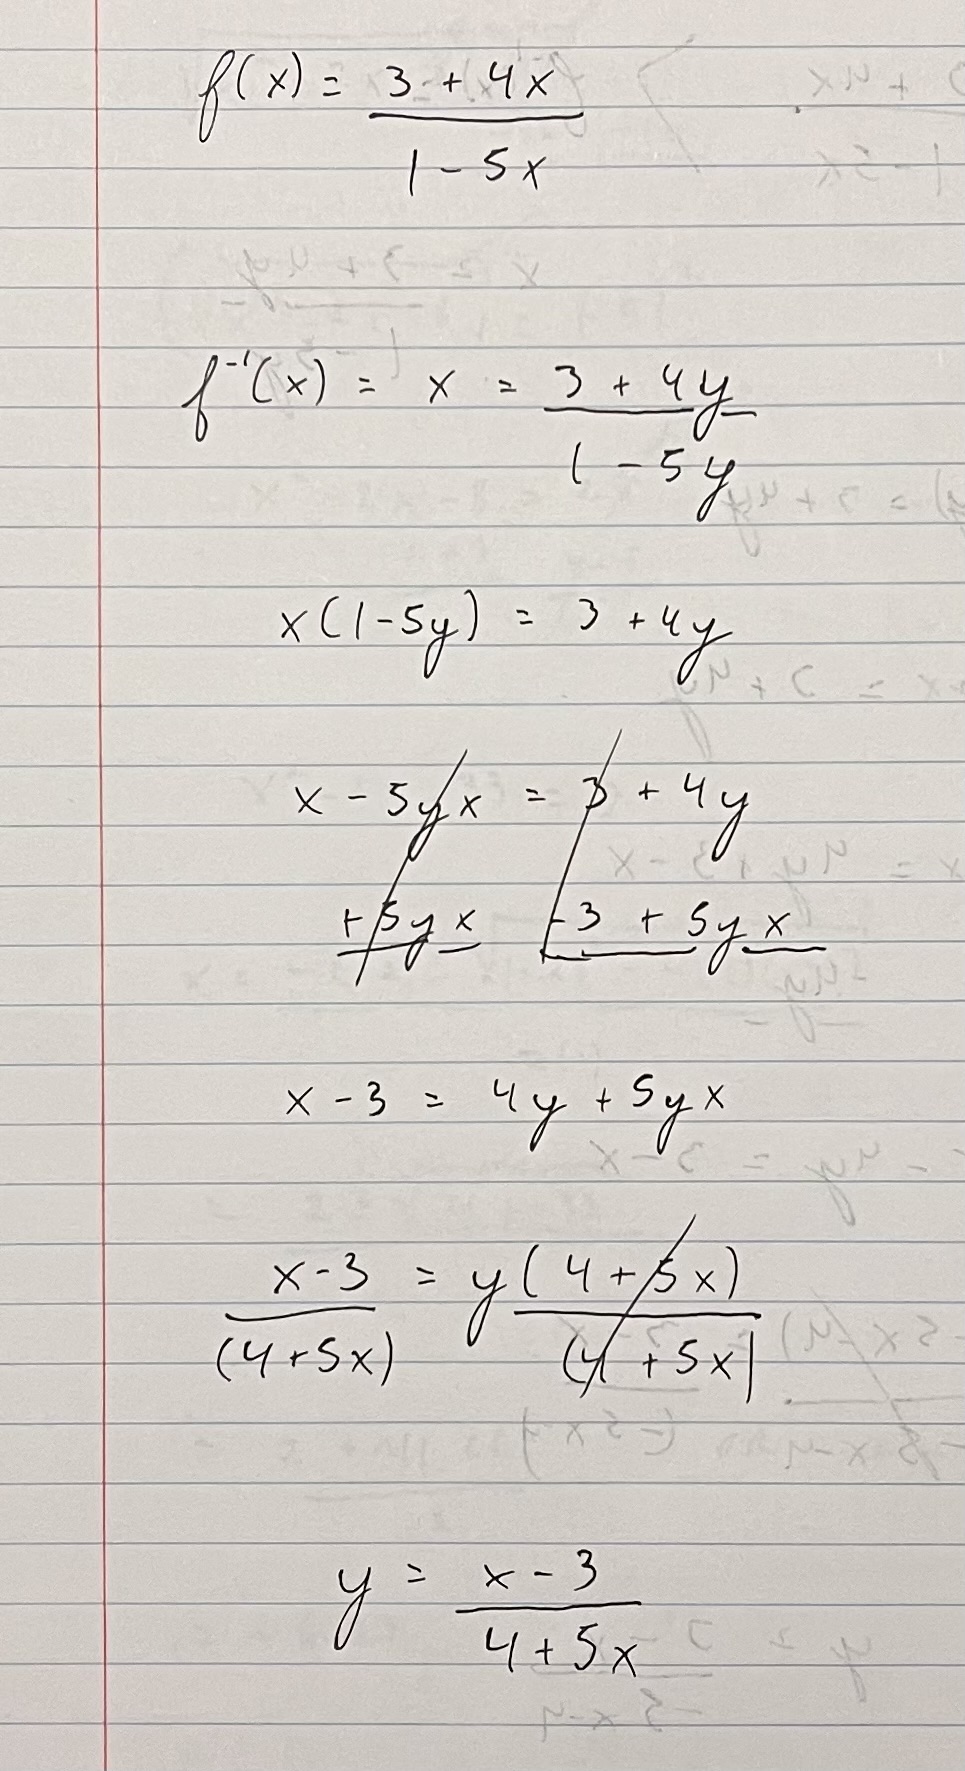 f(x) = 3 + 4x
1 - 5x
f⁻¹(x) = x = 3 + 4y
1 - 5y
x(1-5y) = 3 + 4y
x - 5yx = 3 + 4y
+5yx -3 + 5yx
x - 3 = 4y + 5yx
x - 3 = y(4 + 5x)
(4+5x) (4 + 5x)
y = x - 3
4 + 5x